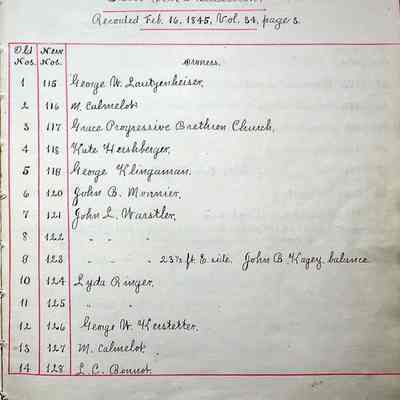 Recorded Feb. 16, 1845, Vol. 34, page 3.
Old Nos. New Nos. Owners.
1 115 George W. Lautzenheiser.
2 116 M. Calmelot
3 117 Grace Progressive Brethren Church.
4 118 Kate Hershberger.
5 119 George Klingaman.
6 120 John B. Monnier.
7 121 John L. Warstler.
8 122 " " "
9 123 " " " 23½ ft E. side. John B. Kagey balance
10 124 Lyda Ringer.
11 125 " "
12 126 George W. Kerstetter.
13 127 M. Calmelot
14 128 L. C. Bonnot.